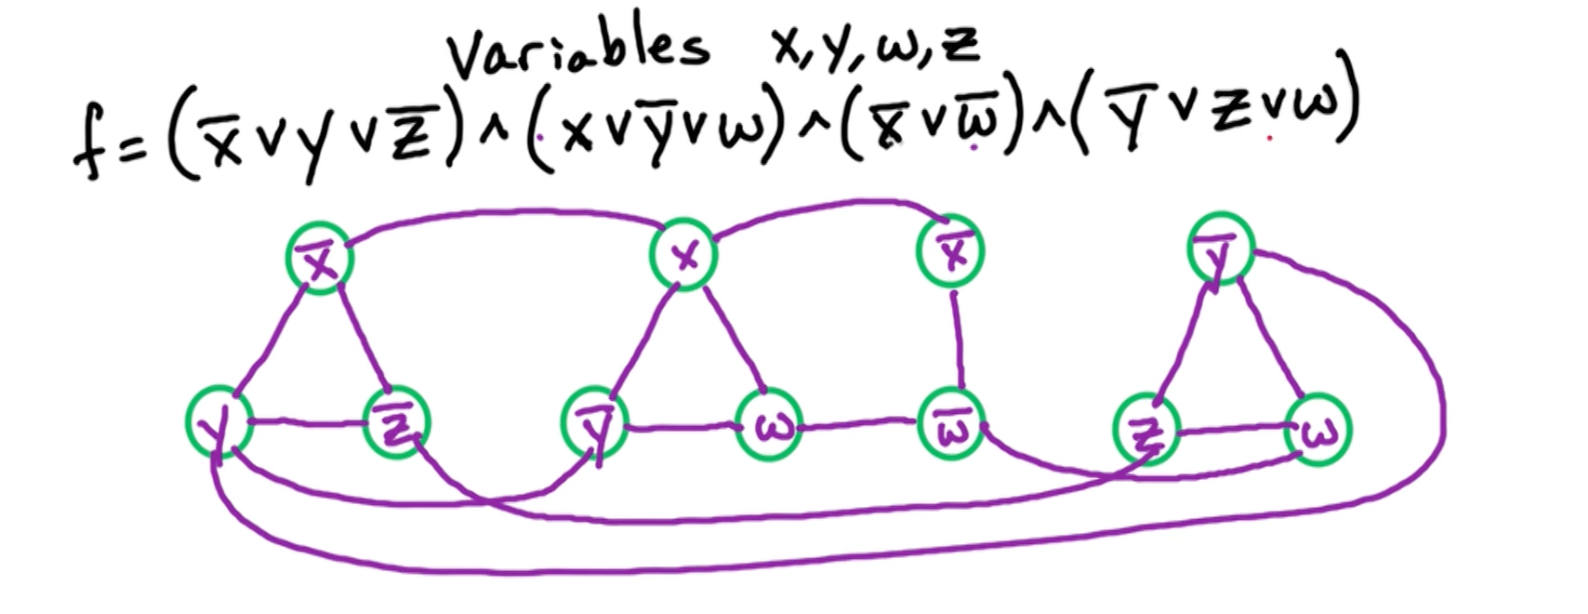 Variables x, y, w, z
f = (x̅ ∨ y ∨ z̅) ∧ (x ∨ y̅ ∨ w) ∧ (x̅ ∨ w̅) ∧ (y̅ ∨ z ∨ w)
x̅ x x̅ y̅
y z̅ y̅ w w̅ z w